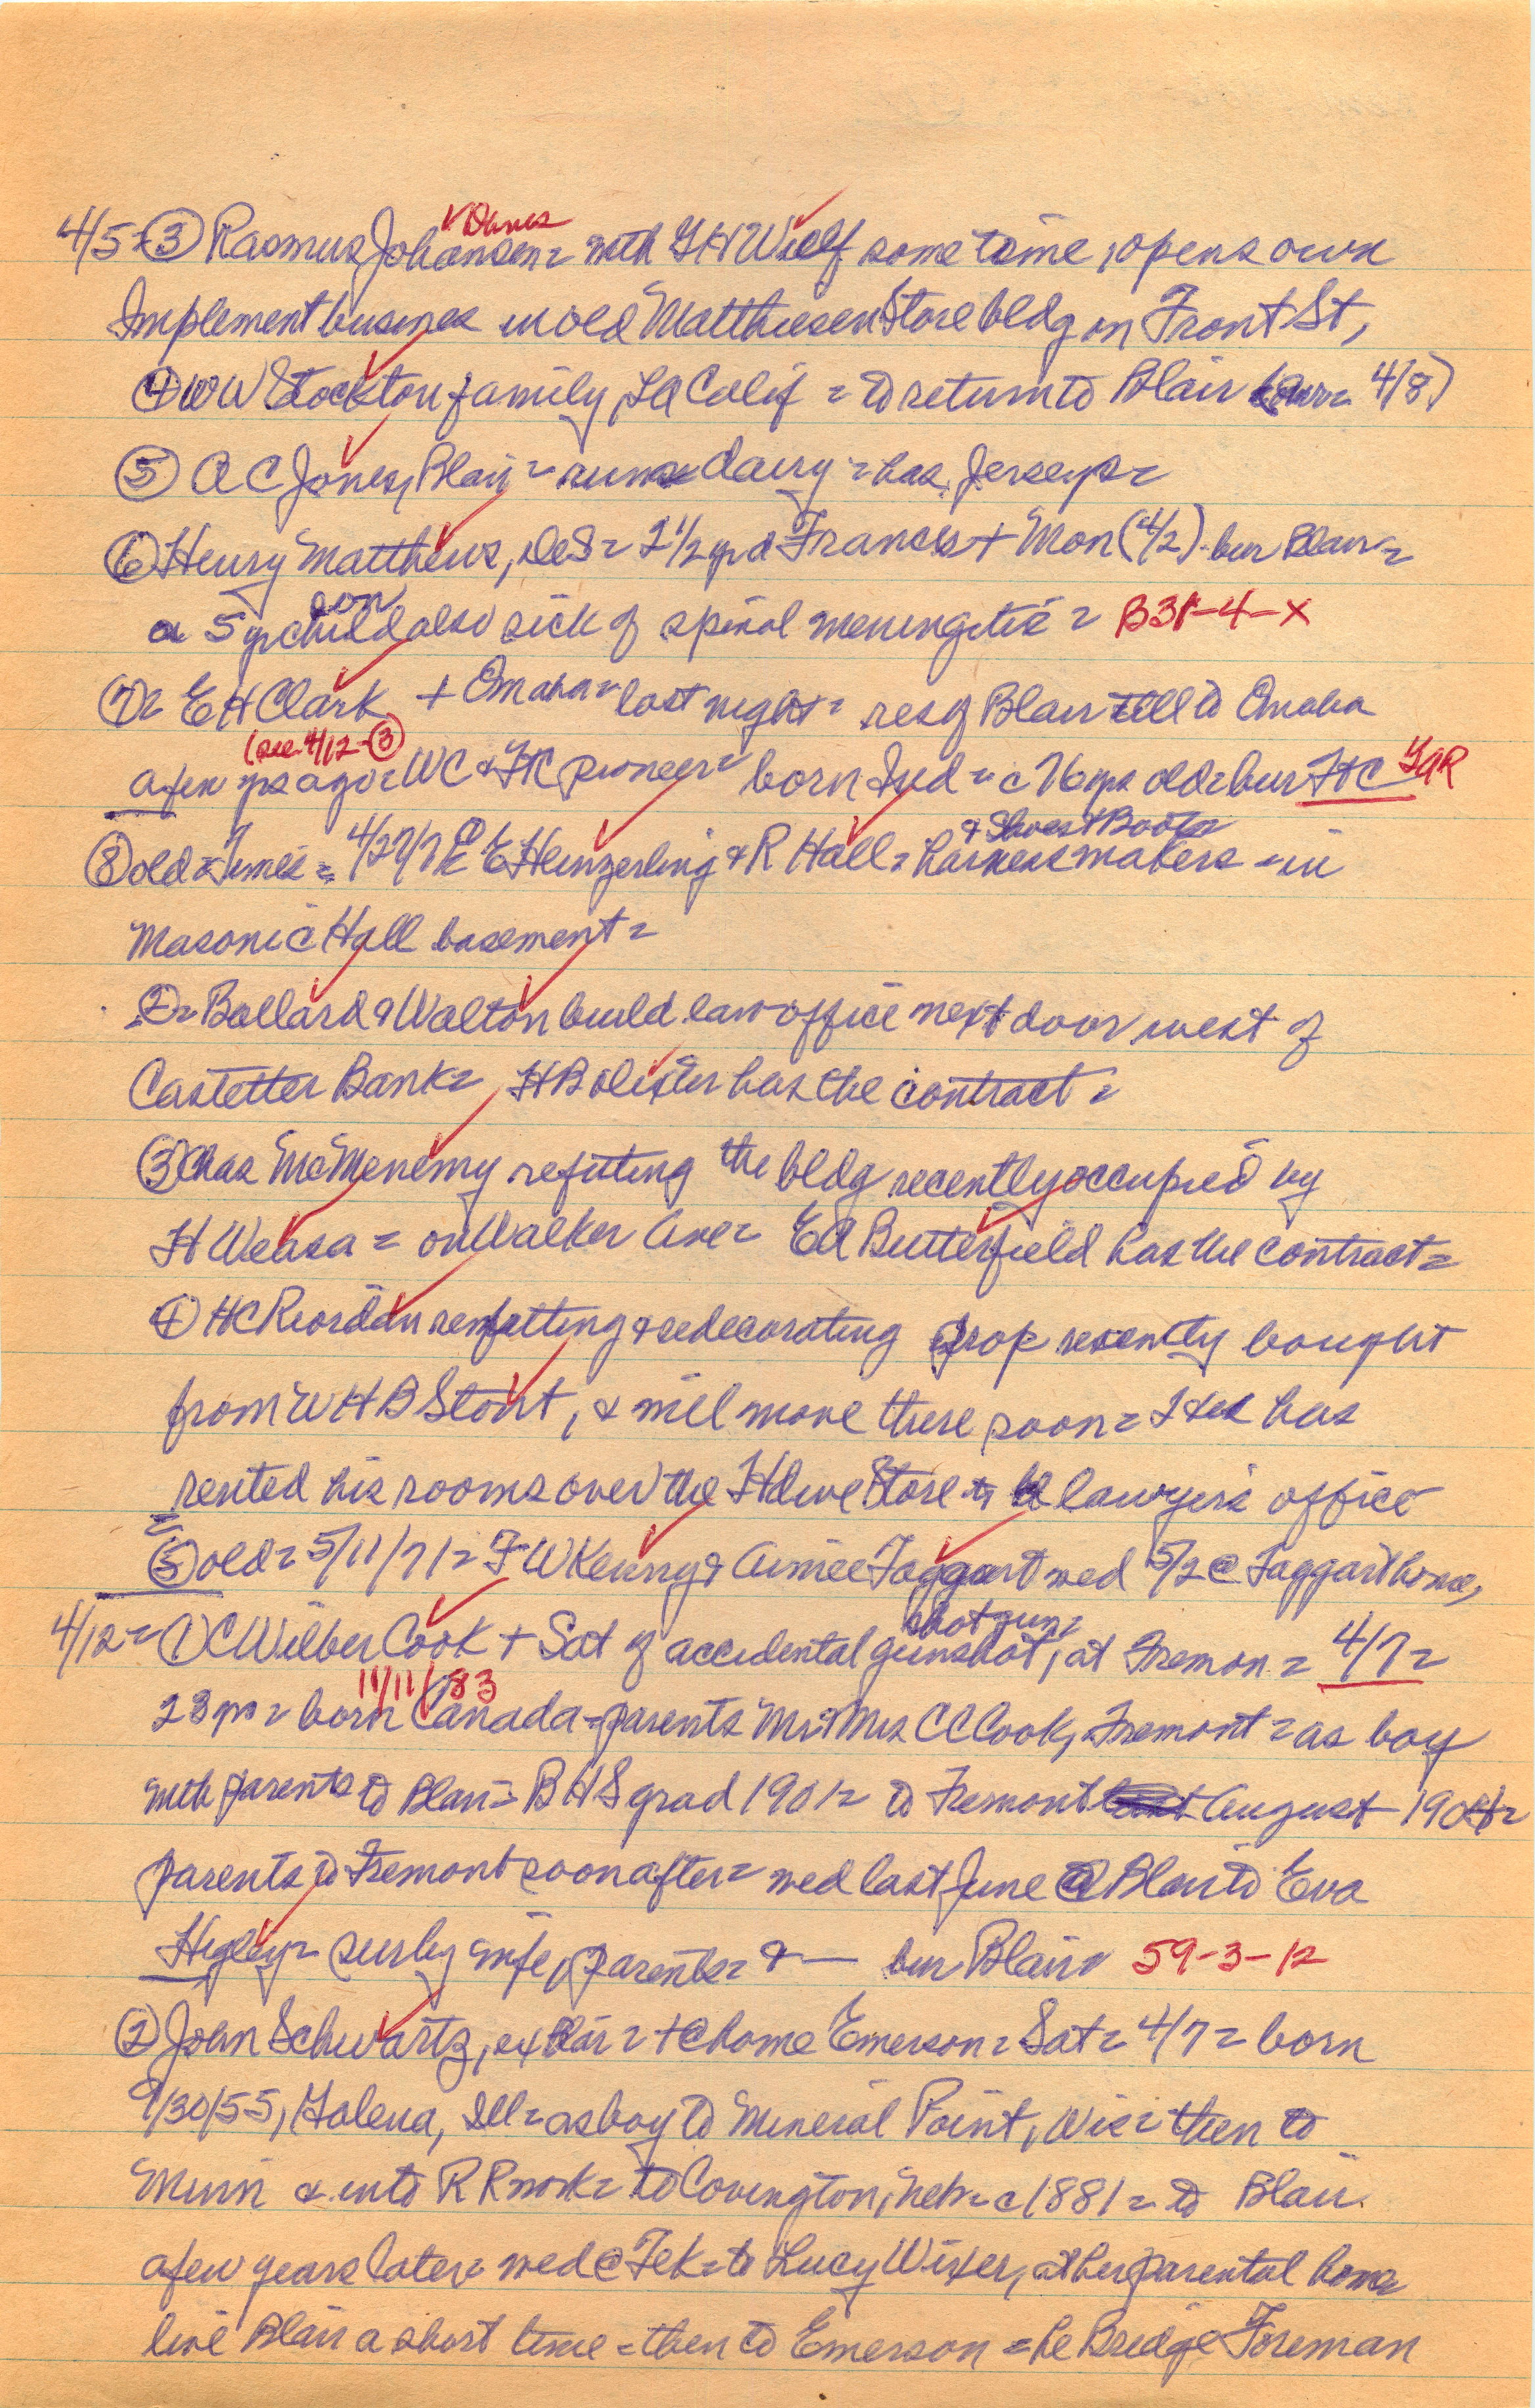 4/5 = ③ Rasmus Johansen = with G H Wulf some time, opens own
✓ Danes
Implement business in old Matthiesen Store bldg on Front St,
④ W W Stockton family, LA Calif = to return to Blair (arr = 4/8)
⑤ A C Jones, Blair = runs dairy = has Jerseys =
⑥ Henry Matthews, DeS = 2 1/2 yr d Frances + Mon (4/2) bur Blair =
son
a 5 yr child also sick of spinal meningitis = B31-4-X
⑦ = E H Clark + Omaha = last night = res of Blair till to Omaha
(see 4/12-③
a few yrs ago = WC & FtC pioneer = born Ind = c 76 yrs old = bur FtC GAR
& Shoes & Boots
⑧ old Times = 4/27/71 E Heinzerling & R Hall = harness makers = in
Masonic Hall basement =
② = Ballard & Walton build law office next door west of
Castetter Bank = H B olixter has the contract =
③ Chas McMenemy refitting the bldg recently occupied by
H Weasa = on Walker Ave = Ed Butterfield has the contract =
④ H C Riordan remfatting & redecorating prop recently bought
from W H B Stout, & will move there soon = has
rented his rooms over the Hdwe Store to lawyers office
⑤ old = 5/11/71 = F W Kenny & Aimee Taggart wed 5/2 @ Taggart home,
shotgun =
4/12 = ① C Wilber Cook + Sat of accidental gunshot, at Fremon = 4/7 =
11/11/83
23 yrs = born Canada = parents Mr & Mrs C C Cook, Fremont = as boy
with parents to Blair = B H S grad 1901 = to Fremont August 1904 =
parents to Fremont soon after = wed last June @ Blair to Eva
Higley = surby wife, parents = & — bur Blair = 59-3-12
② John Schwartz, ex Blair = + @ home Emerson = Sat = 4/7 = born
9/30/55, Galena, Ill = as boy to Mineral Point, Wis = then to
Minn & into R R work = to Covington, Neb = c 1881 = to Blair
a few years later = wed @ Tek = to Lucy Wixer, at her parental home
live Blair a short time = then to Emerson = he Bridge Foreman